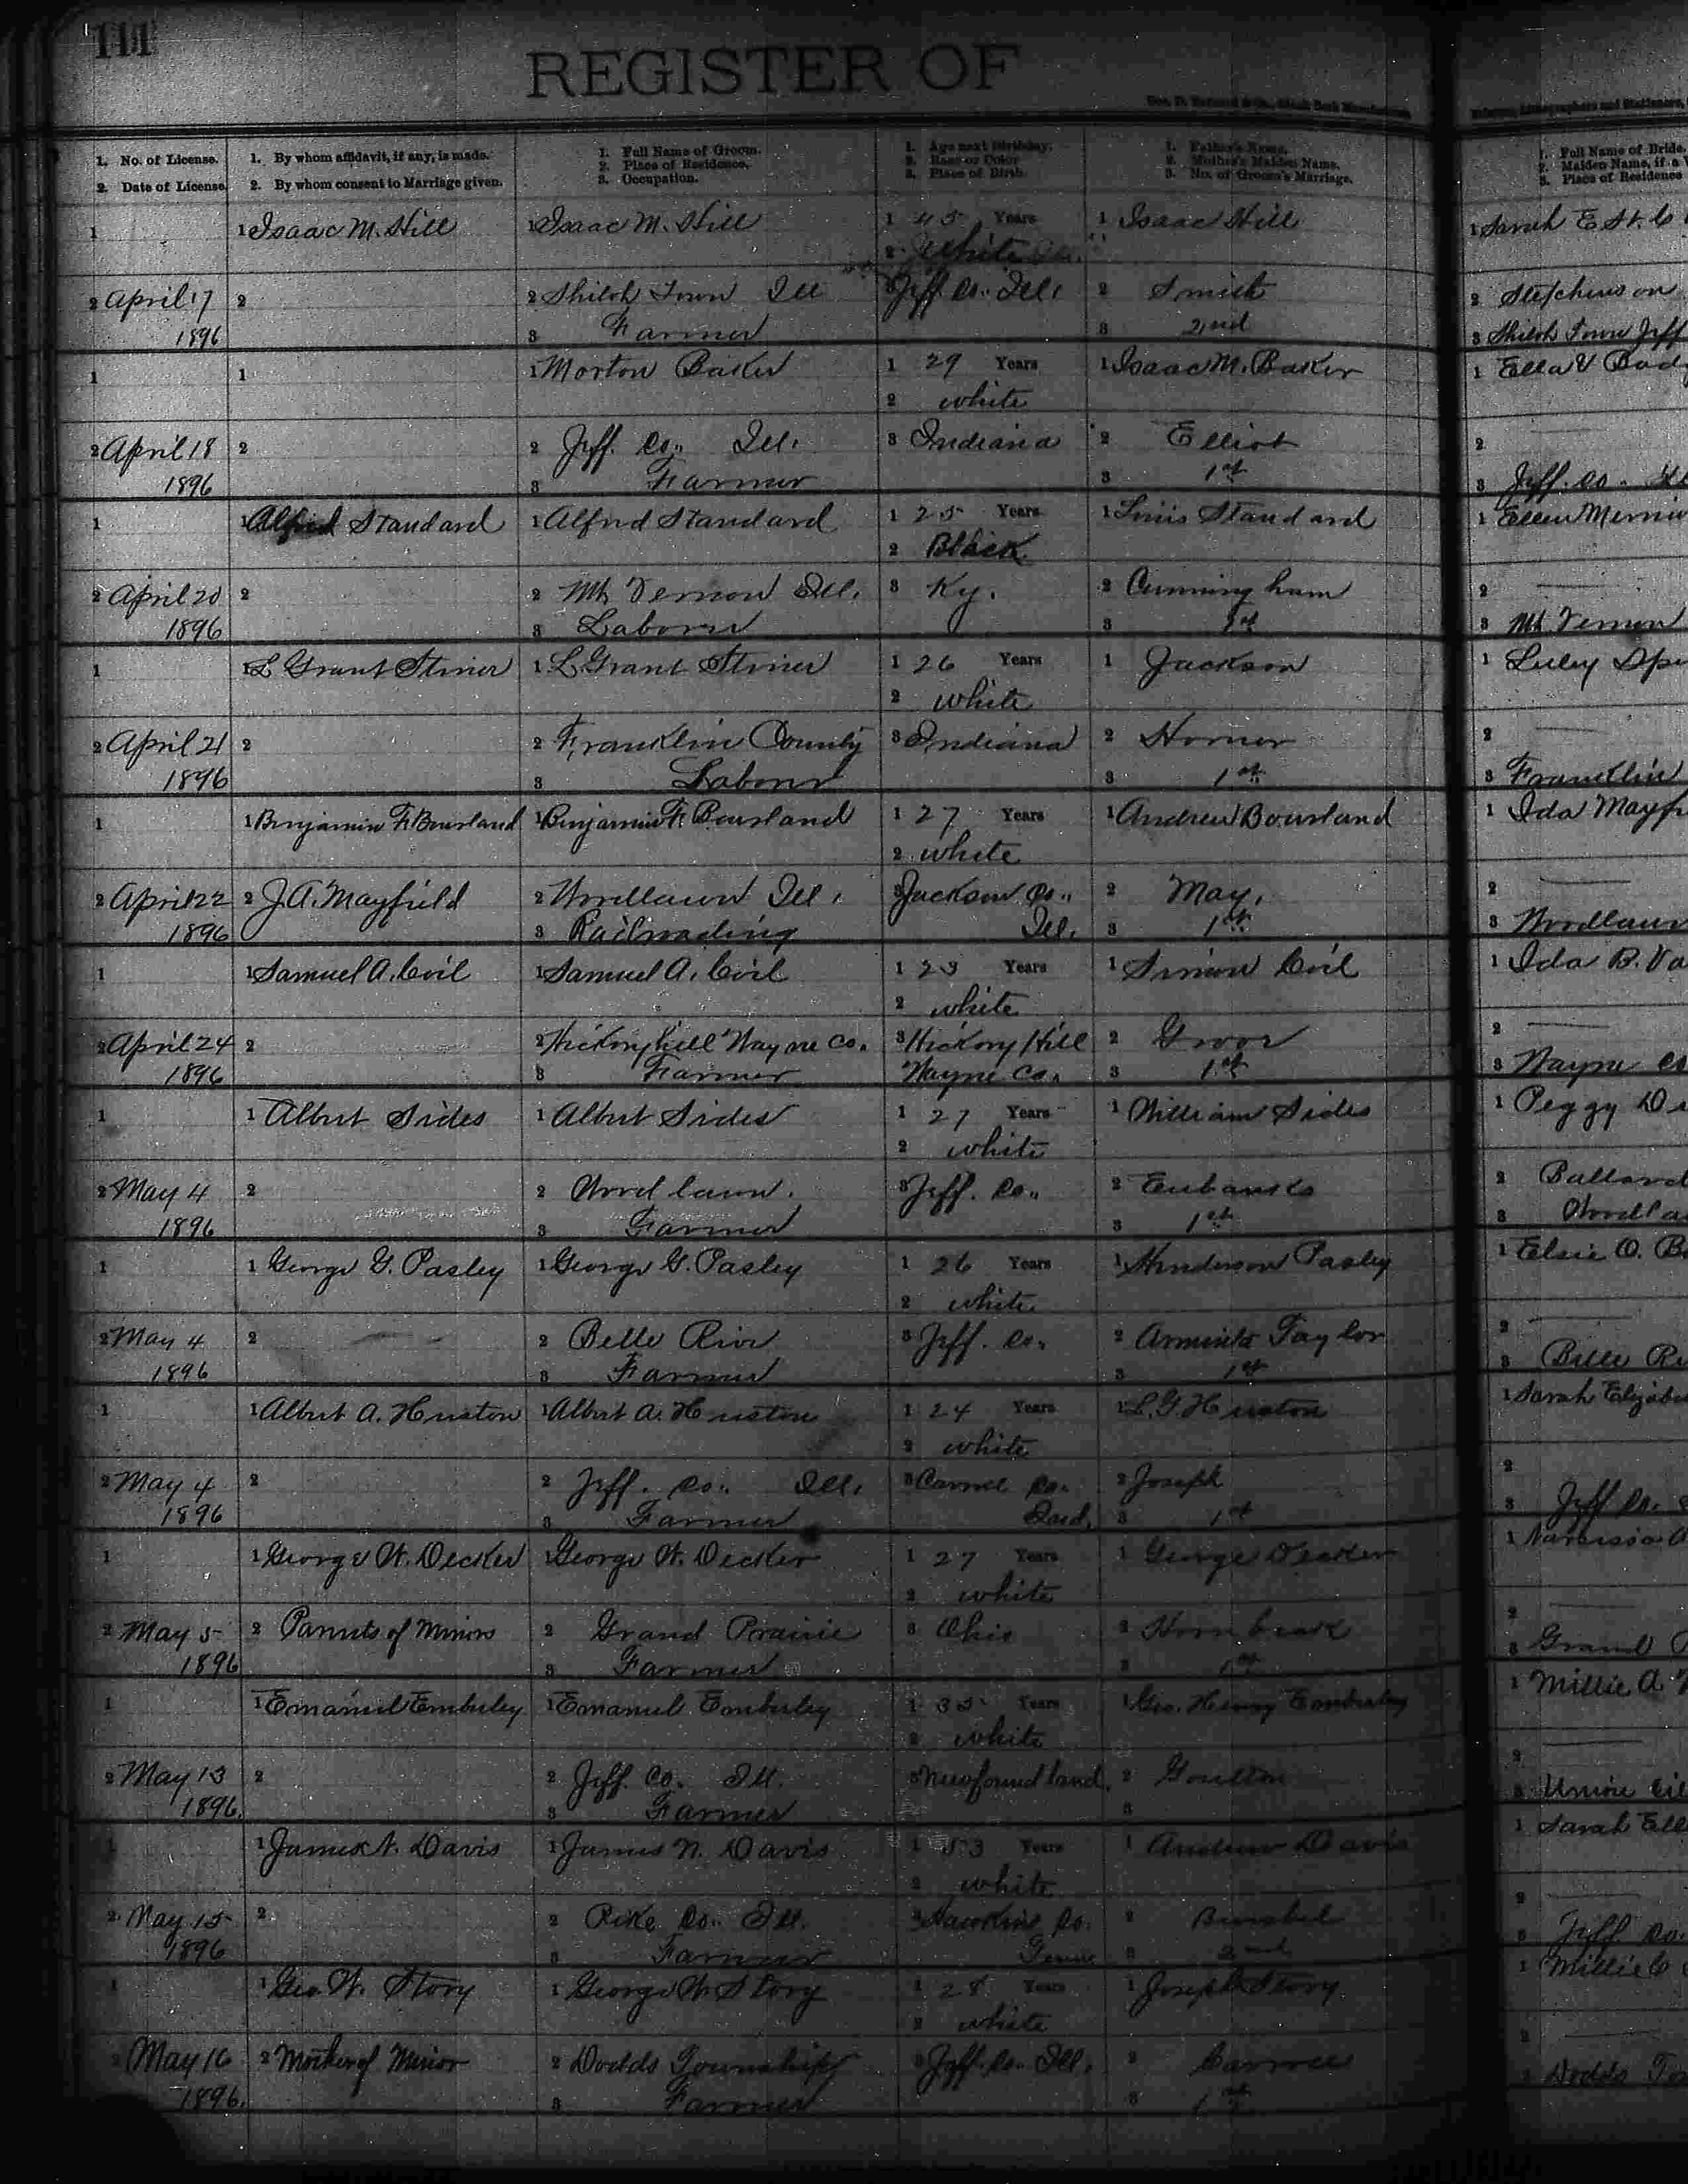 111
REGISTER OF
1. No. of License.
2. Date of License.
1. By whom affidavit, if any, is made.
2. By whom consent to Marriage given.
1. Full Name of Groom.
2. Place of Residence.
3. Occupation.
1. Age next Birthday.
2. Race or Color
3. Place of Birth.
1. Father's Name.
2. Mother's Maiden Name.
3. No. of Groom's Marriage.
1. Full Name of Bride.
2. Maiden Name, if a
3. Place of Residence
1 1 Isaac M. Hill 1 Isaac M. Hill 1 45 Years 1 Isaac Hill 1 Sarah E St. C
2 White
2 April 17 2 2 Shiloh Town Ill 3 Jeff. Co. Ill. 2 Smith 2 Stephenson
1896 3 Farmer 3 2nd 3 Shiloh Town Jeff
1 1 1 Morton Baker 1 29 Years 1 Isaac M. Baker 1 Ella V
2 white
2 April 18 2 2 Jeff. Co. Ill. 3 Indiana 2 Elliot 2
1896 3 Farmer 3 1st 3 Jeff. Co.
1 1 Alfred Standard 1 Alfred Standard 1 25 Years 1 Standard 1 Ellen
2 Black
2 April 20 2 2 Mt Vernon Ill. 3 Ky. 2 Cunningham 2
1896 3 Laborer 3 3 Mt Vernon
1 1 L Grant Stiner 1 L. Grant Stiner 1 26 Years 1 Jackson 1
2 white
2 April 21 2 2 Franklin County 3 Indiana 2 Horner 2
1896 3 Laborer 3 1st 3 Franklin
1 1 Benjamin F. Bourland 1 Benjamin F. Bourland 1 27 Years 1 Andrew Bourland 1 Ida Mayf
2 white
2 April 22 2 J. A. Mayfield 2 Woodlawn Ill. 3 Jackson Co. 2 May. 2
1896 3 Railroading Ill. 3 1st 3 Woodlawn
1 1 Samuel A. Coil 1 Samuel A. Coil 1 23 Years 1 Simion Coil 1 Ida B. Va
2 white
2 April 24 2 2 Hickory hill Wayne Co. 3 Hickory Hill 2 2
1896 3 Farmer Wayne Co. 3 1st 3 Wayne Co
1 1 Albert Sides 1 Albert Sides 1 27 Years 1 William Sides 1 Peggy
2 white
2 May 4 2 2 Woodlawn. 3 Jeff. Co. 2 Eubanks 2 Ballard
1896 3 Farmer 3 1st 3 Woodla
1 1 George G. Pasley 1 George G. Pasley 1 26 Years 1 Henderson Pasley 1 Elsie O. B
2 white.
2 May 4 2 2 Belle Rive 3 Jeff. Co. 2 Arminta Taylor 2
1896 3 Farmer 3 1st 3 Belle Ri
1 1 Albert A. Huston 1 Albert A. Huston 1 24 Years 1 L. G Huston 1 Sarah Elizabe
2 white
2 May 4 2 2 Jeff. Co. Ill. 3 Co. 2 Joseph 2
1896 3 Farmer Ind. 3 1st 3 Jeff Co.
1 1 George W. Decker 1 George W. Decker 1 27 Years 1 George Decker 1
2 white
2 May 5 2 Parents of Minors 2 Grand Prairie 3 Ohio 2 Hornbeak 2
1896 3 Farmer 3 1st 3 Grand
1 1 Emanuel Emberley 1 Emanuel Emberley 1 35 Years 1 Geo. Henry Emberley 1 Millie A.
2 white
2 May 13 2 2 Jeff. Co. Ill. 3 Newfoundland. 2 2
1896. 3 Farmer 3 3
1 1 James N. Davis 1 James N. Davis 1 53 Years 1 Andrew Davis 1 Sarah Ell
2 white
2 May 15 2 2 Pike Co. Ill. 3 Hawkins Co. 2 2
1896 3 Farmer Tenn. 3 2nd 3 Jeff Co.
1 1 Geo. W. Story 1 George W. Story 1 28 Years 1 Joseph Story 1 Millie C
2 white
2 May 16 2 Mother of Minor 2 Dodds Township 3 Jeff. Co. Ill. 2 2
1896. 3 Farmer 3 1st Dodds